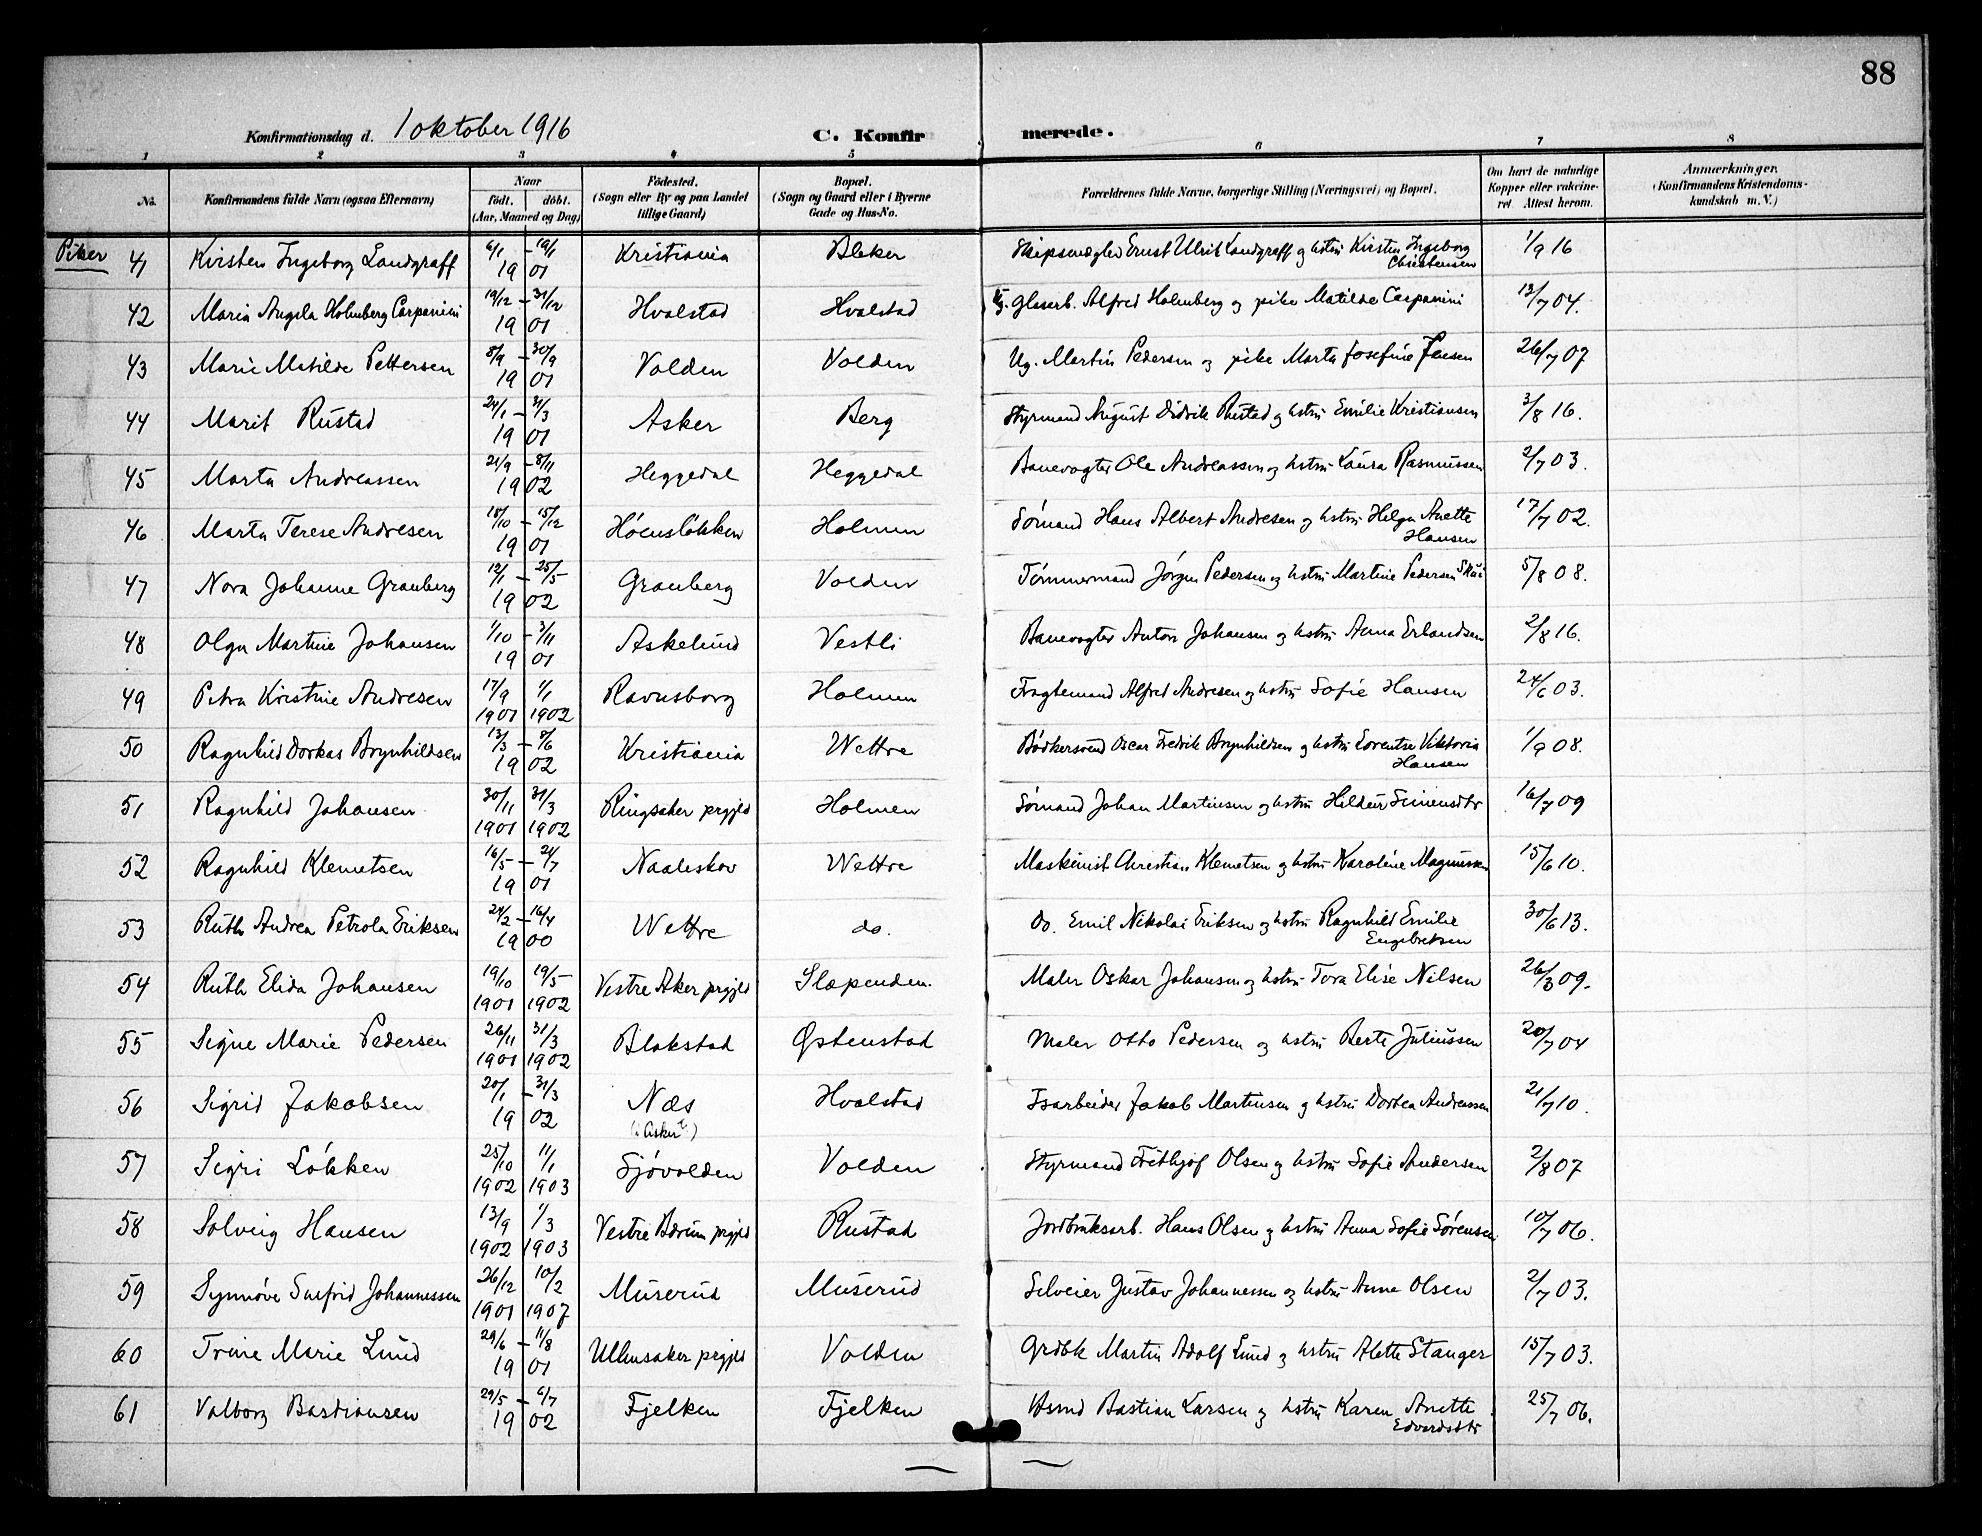 88
Konfirmationsdag d. 1 oktober 1916 C. Konfirmerede.
1 2 3 4 5 6 7 8
No. Konfirmandens fulde Navn (ogsaa Efternavn) Naar født. døbt. (Aar, Maaned og Dag) Fødested. (Sogn eller By og paa Landet tillige Gaard) Bopæl. (Sogn og Gaard eller i Byerne Gade og Hus-No. Forældrenes fulde Navne, borgerlige Stilling (Næringsvei) og Bopæl. Om havt de naturlige Kopper eller vakcineret. Attest herom. Anmærkninger. (Konfirmandens Kristendomskundskab m. V.)
Piker 41 Kirsten Ingeborg Landgraff 6/1 - 19/1 1901 Kristiania Bleker Skipsmægler Ernst Ulrik Landgraff og hstru Kirsten Ingeborg Christensen 1/9 16
42 Maria Angela Holmberg Carpanini 19/12 - 31/12 1901 Hvalstad Hvalstad Ug. Glaserb. Alfred Holmberg og pike Matilde Carpanini 13/7 04.
43 Marie Matilde Pettersen 8/9 - 30/9 1901 Volden Volden Ug. Martin Pedersen og pike Marta Josefine Jensen 26/7 07
44 Marit Rustad 24/1 - 31/3 1901 Asker Berg Styrmand August Didrik Rustad og hstru Emilie Kristiansen 3/8 16.
45 Marta Andreassen 21/9 - 8/11 1902 Heggedal Heggedal Banevogter Ole Andreassen og hstru Laura Rasmussen 2/7 03.
46 Marta Terese Andresen 18/10 - 15/12 1901 Høensløkken Holmen Sømand Hans Albert Andresen og hstru Helga Anette Hansen 17/7 02.
47 Nora Johanne Granberg 12/1 - 25/5 1902 Granberg Volden Tømmermand Jørgen Pedersen og hstru Martine Pedersen Skui 5/8 08.
48 Olga Martine Johansen 1/10 - 3/11 1901 Askelund Vestli Banevogter Anton Johansen og hstru Anna Erlandsen 2/8 16.
49 Petra Kristine Andresen 17/9 1901 1/1 1902 Ravnsborg Holmen Fragtemand Alfred Andresen og hstru Sofie Hansen 24/6 03.
50 Ragnhild Dorkas Brynhildsen 13/3 - 8/6 1902 Kristiania Wettre Bødkersvend Oscar Fredrik Brynhildsen og hstru Lorentse Viktoria Hansen 1/9 08.
51 Ragnhild Johansen 30/11 1901 31/3 1902 Ringsaker prgjld Holmen Sømand Johan Martinsen og hstru Heldeur Simensdtr 16/7 09
52 Ragnhild Klemetsen 16/5 - 21/7 1901 Naaleskov Wettre Maskinist Christian Klemetsen og hstru Karoline Magnussen 15/6 10.
53 Ruth Andrea Petrola Eriksen 24/2 - 16/4 1900 Wettre do. Do. Emil Nikolai Eriksen og hstru Ragnhild Emilie Engebretsen 30/6 13.
54 Ruth Elida Johansen 19/10 1901 19/5 1902 Vestre Aker prgjld Slæpenden. Maler Oskar Johansen og hstru Tora Elise Nilsen 26/3 09.
55 Signe Marie Pedersen 26/11 1901 31/3 1902 Blakstad Østenstad Maler Otto Pedersen og hstru Berte Juliussen 20/7 04
56 Sigrid Jakobsen 20/1 - 31/3 1902 Næs (i Asker) Hvalstad Isarbeider Jakob Martinsen og hstru Dortea Andreassen 21/7 10.
57 Sigri Løkken 25/10 1902 11/1 1903 Sjøvolden Volden Styrmand Frithjof Olsen og hstru Sofie Andersen 2/8 07
58 Solveig Hansen 13/9 1902 1/3 1903 Vestre Bærum prgjld Rustad Jordbruksarb. Hans Olsen og hstru Anna Sofie Sørensen 10/7 06.
59 Synnøve Snefrid Johannessen 26/12 1901 10/2 1907 Muserud Muserud Selveier Gustav Johannessen og hstru Anne Olsen 2/7 03.
60 Trine Marie Lund 29/6 - 11/8 1901 Ullensaker prgjld Volden Grdbk Martin Adolf Lund og hstru Alette Stanger 15/7 03.
61 Valborg Bastiansen 29/5 - 6/7 1902 Fjelken Fjelken Hsmd Bastian Larsen og hstru Karen Anette Edvardsdtr 25/7 06.